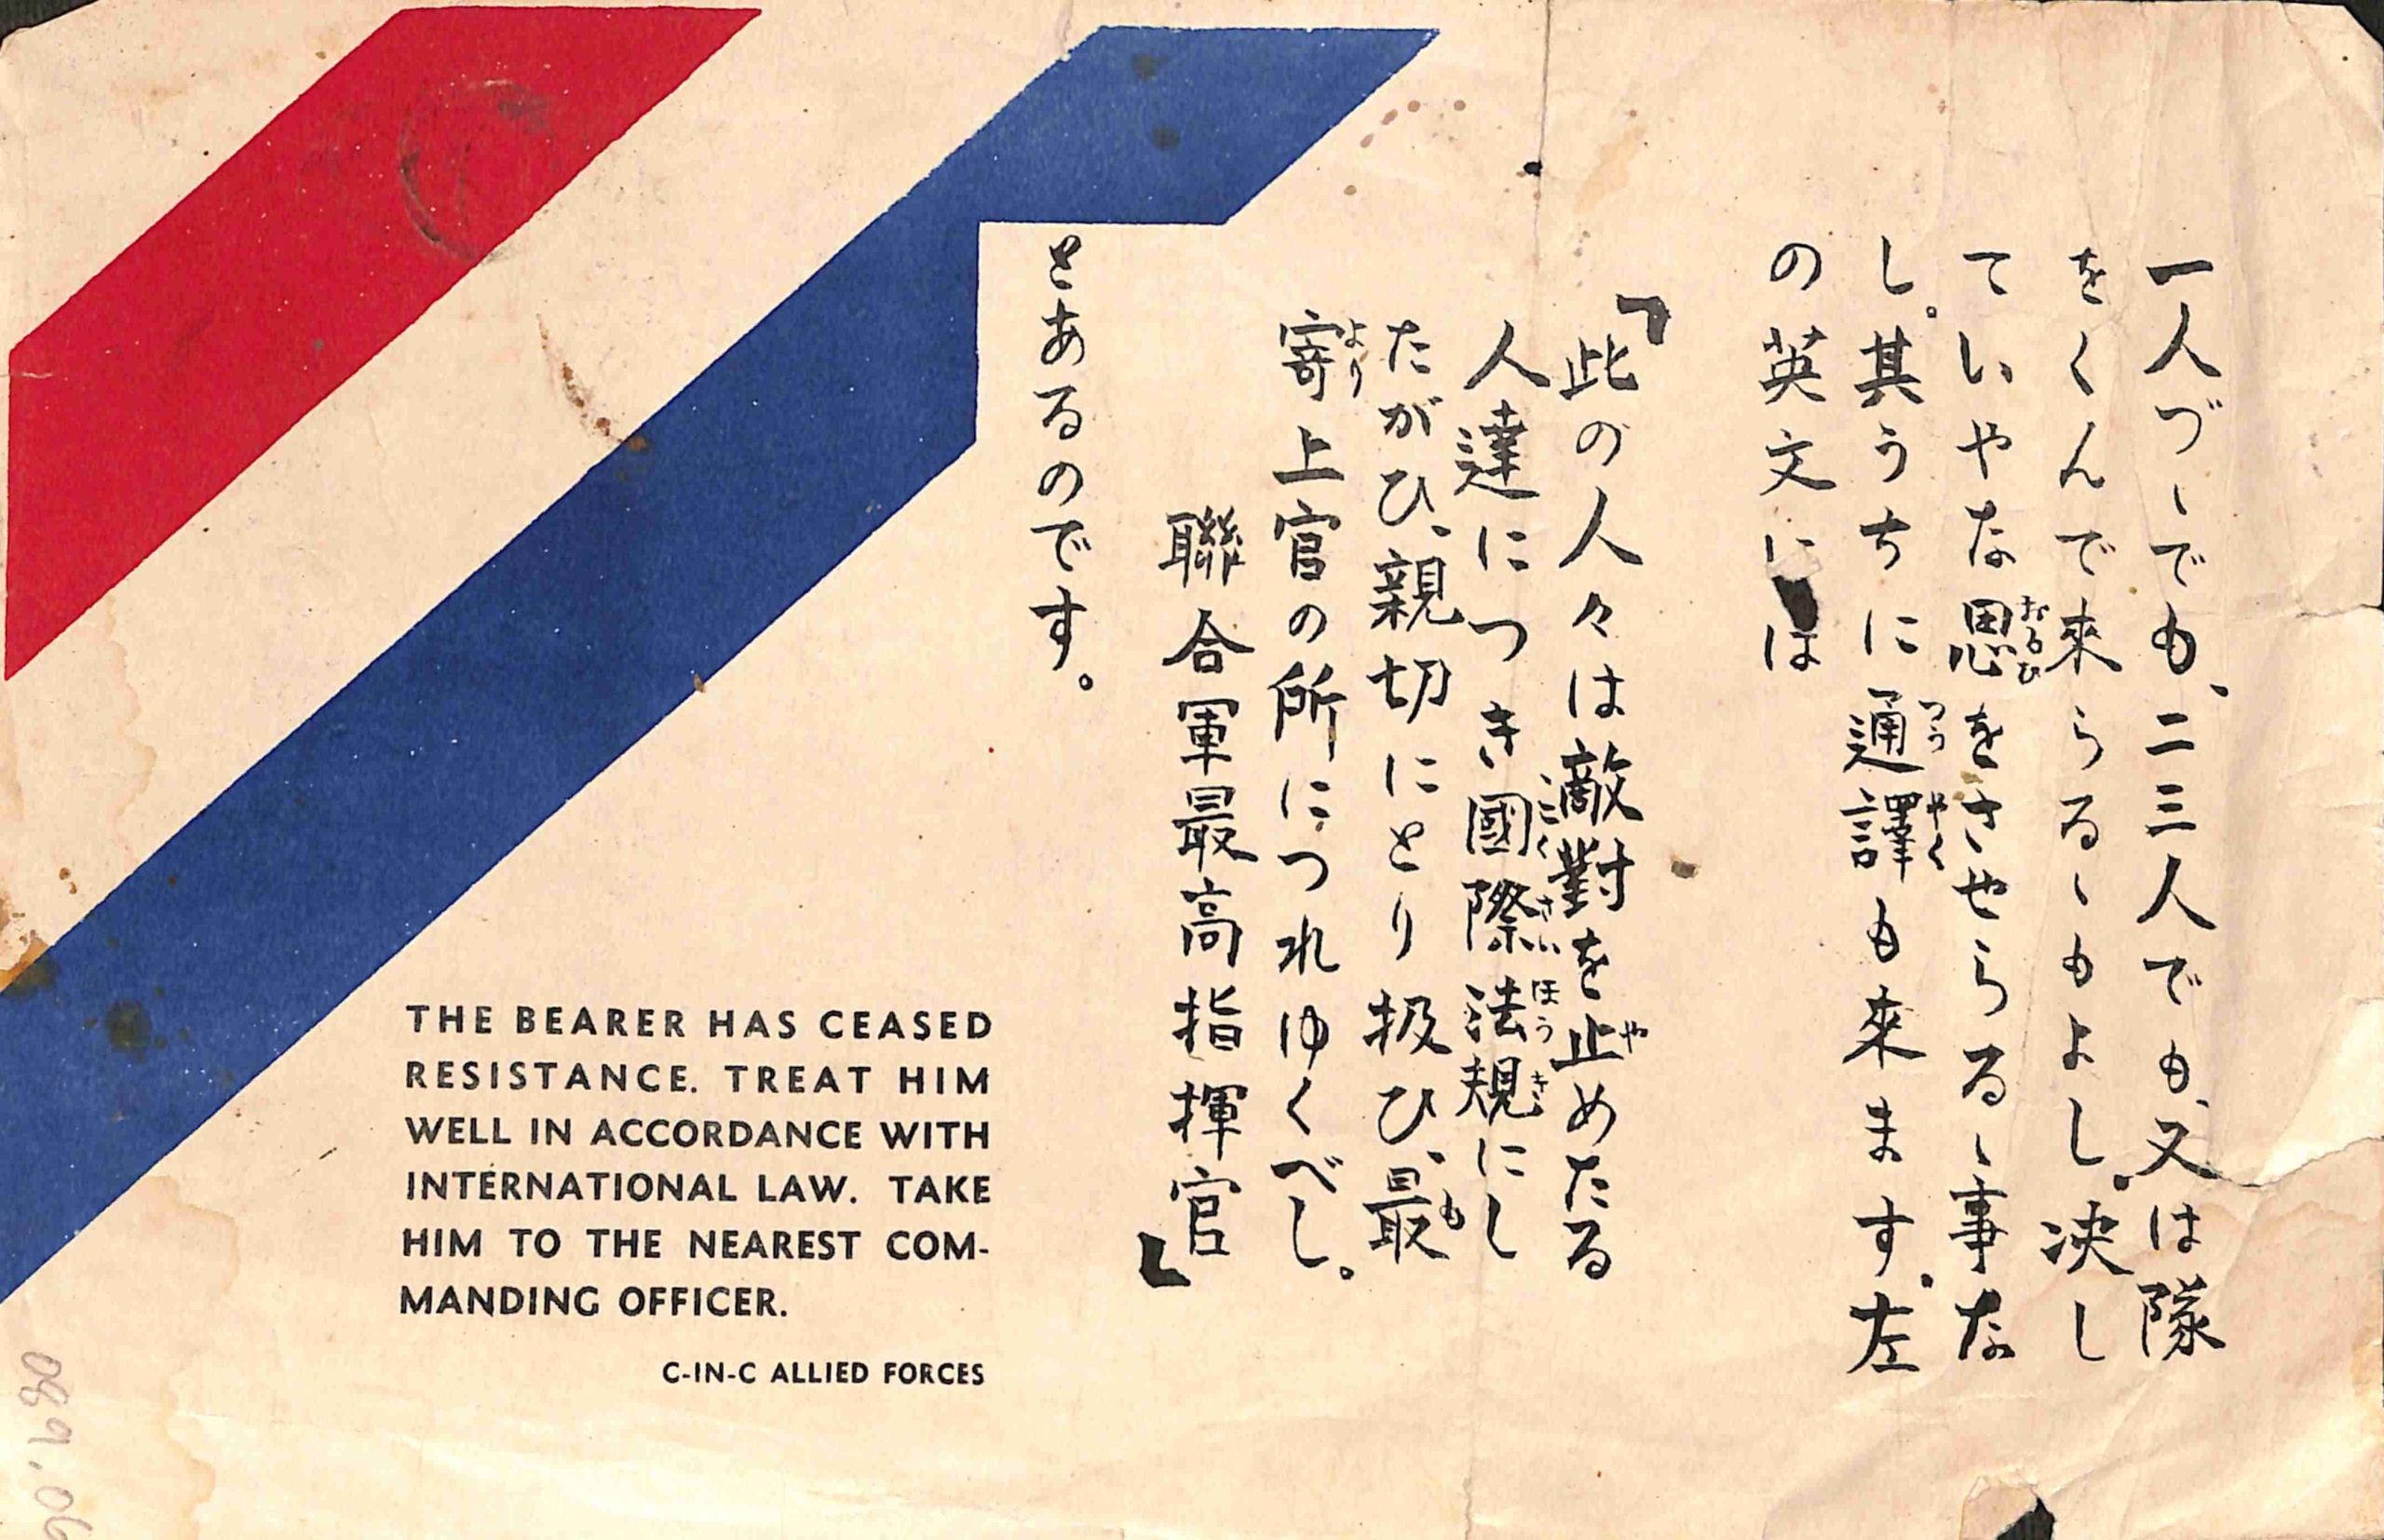 一人づゝでも、二三人でも、又は隊
をくんで來らるゝもよし、決し
ていやな思をさせらるゝ事な
し。其うちに通譯も來ます。左
の英文には
「此の人々は敵對を止めたる
人達につき國際法規にし
たがひ、親切にとり扱ひ、最
寄上官の所につれゆくべし。
聯合軍最高指揮官」
とあるのです。
THE BEARER HAS CEASED
RESISTANCE. TREAT HIM
WELL IN ACCORDANCE WITH
INTERNATIONAL LAW. TAKE
HIM TO THE NEAREST COM-
MANDING OFFICER.
C-IN-C ALLIED FORCES
089.06